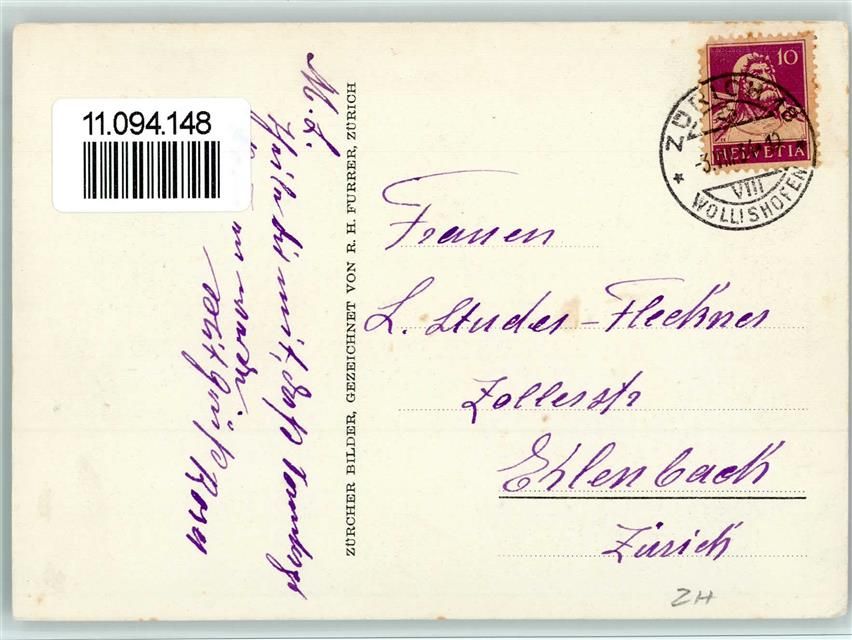 11.094.148
M. L.
Teile dir mit, daß
Mit Gruß Rosa
ZÜRCHER BILDER, GEZEICHNET VON R. H. FURRER, ZÜRICH
10
HELVETIA
ZÜRICH
VIII
WOLLISHOFEN
Frauen
L. Studer-Fleckner
Zollerstr
Erlenbach
Zürich
ZH